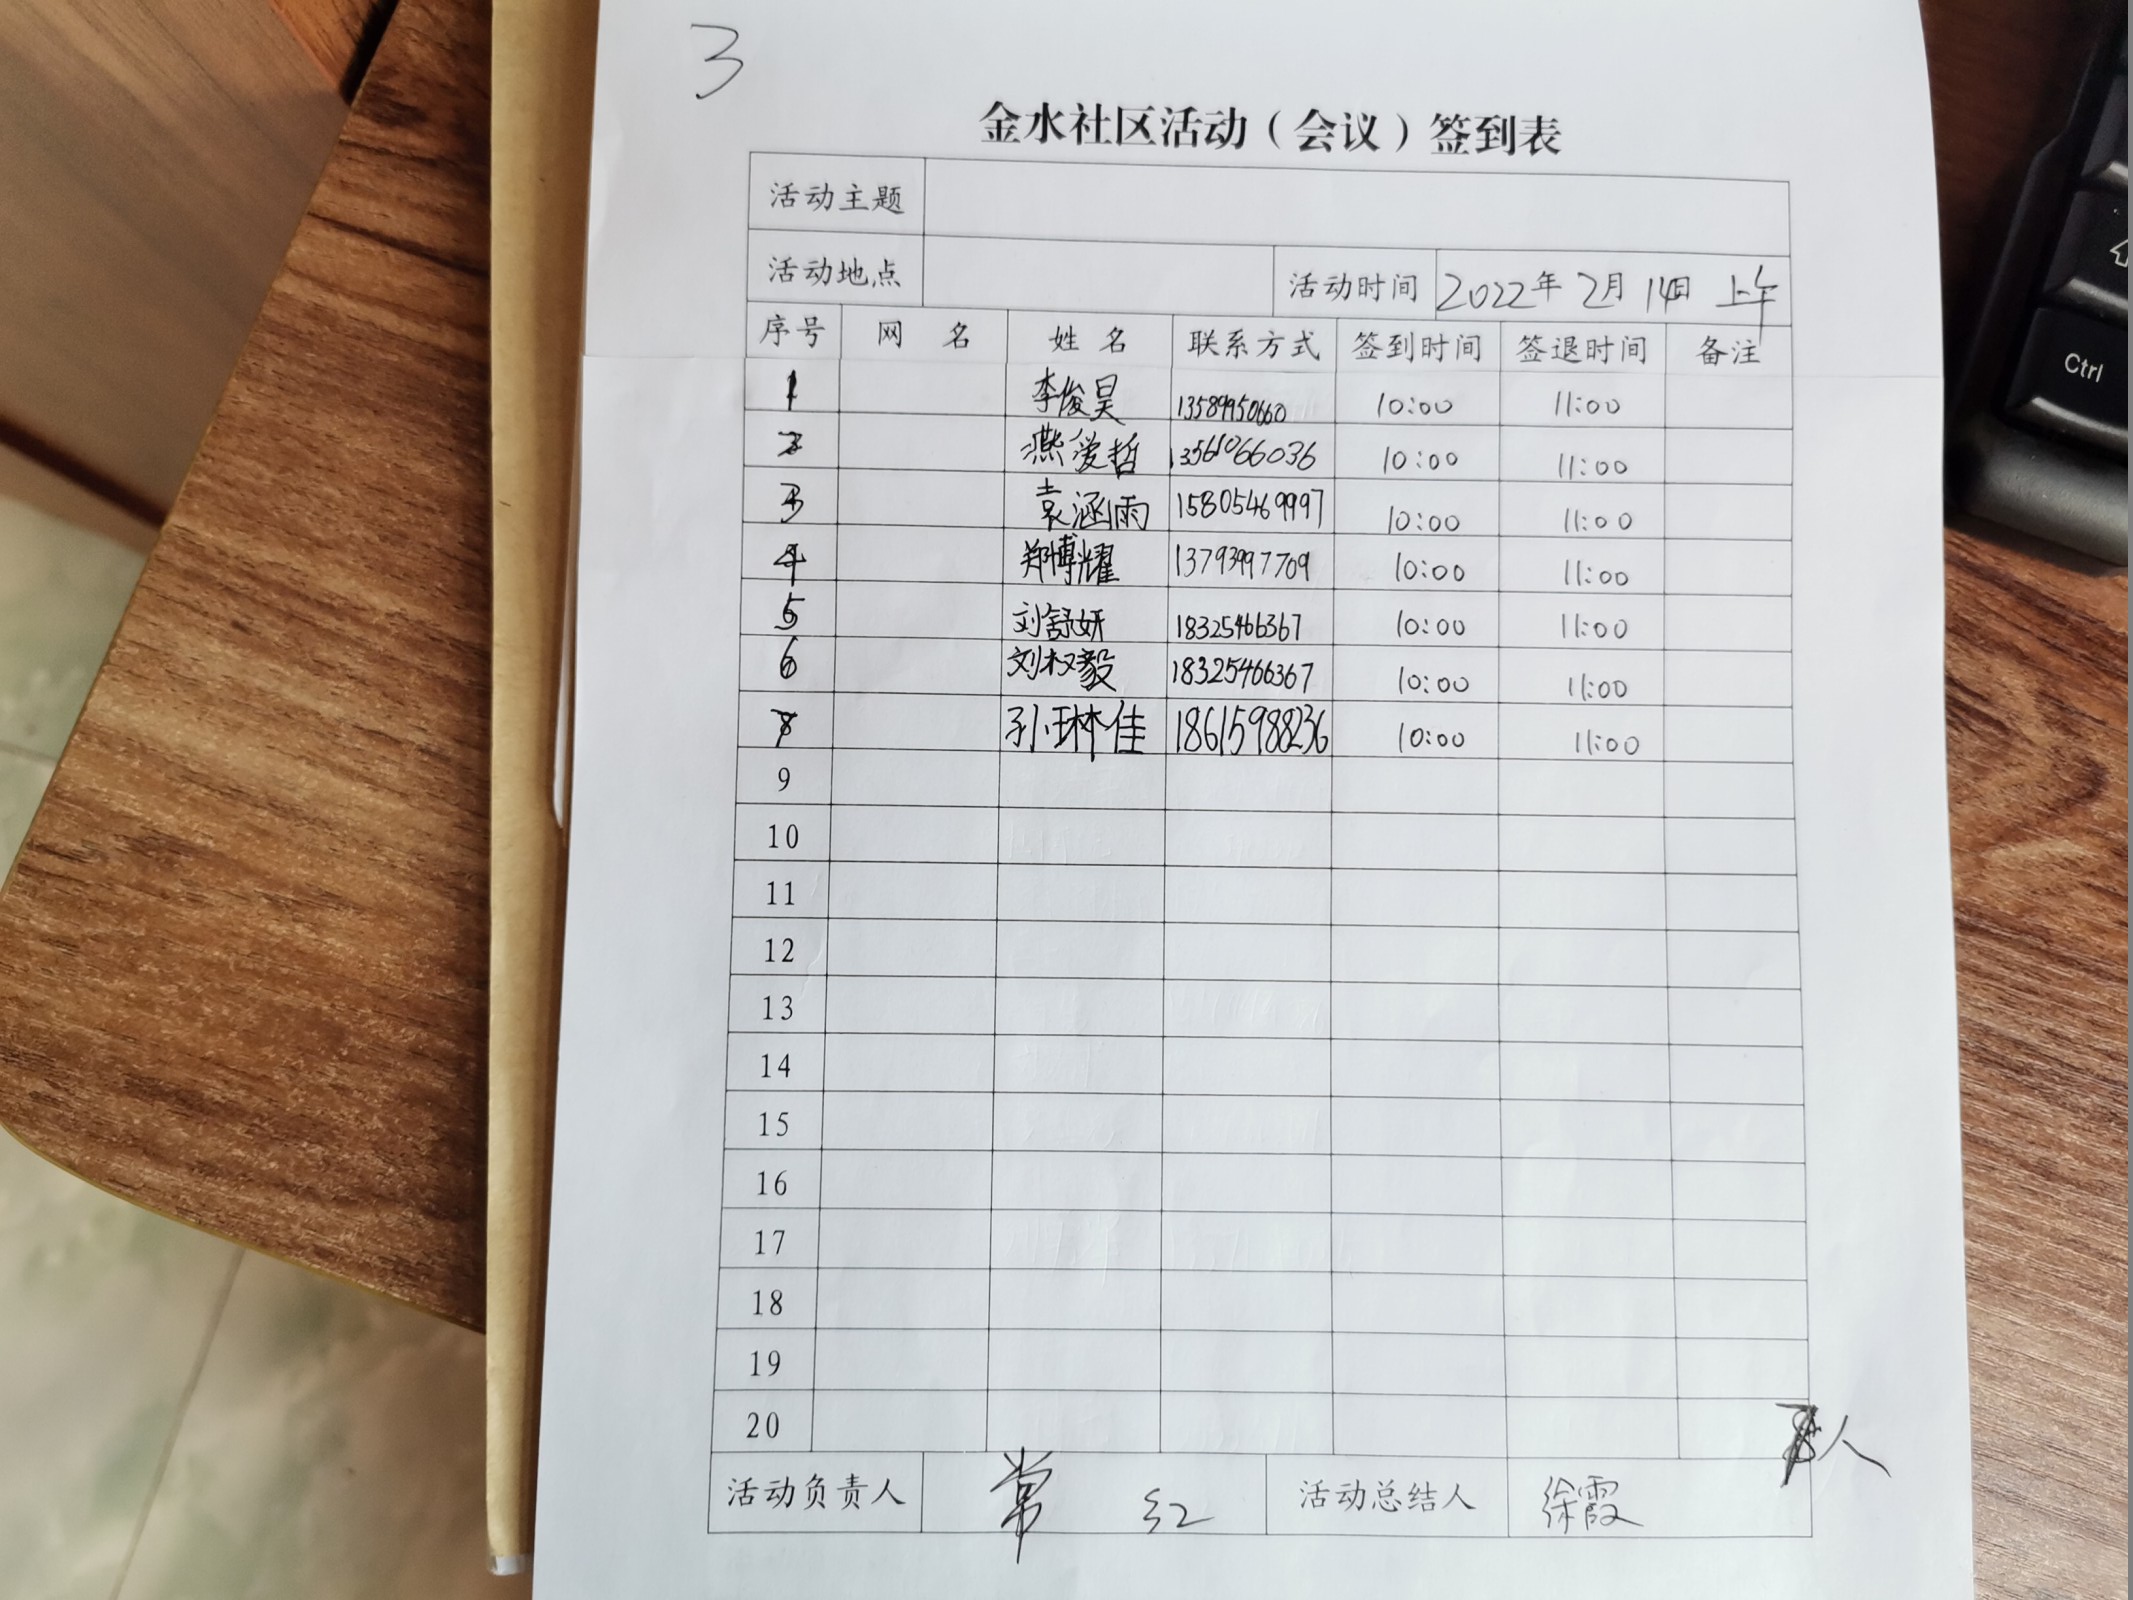 3
金水社区活动（会议）签到表
活动主题
活动地点 活动时间 2022年 2月 14日 上午
序号 网 名 姓 名 联系方式 签到时间 签退时间 备注
1 李俊昊 13589950660 10:00 11:00
2 燕爱哲 13561066036 10:00 11:00
3 袁涵雨 15805469997 10:00 11:00
4 郑博耀 13793997709 10:00 11:00
5 刘舒妍 18325466367 10:00 11:00
6 刘权毅 18325466367 10:00 11:00
7 孙琳佳 18615988236 10:00 11:00
9
10
11
12
13
14
15
16
17
18
19
20
人
活动负责人 常 红 活动总结人 徐霞
Ctrl